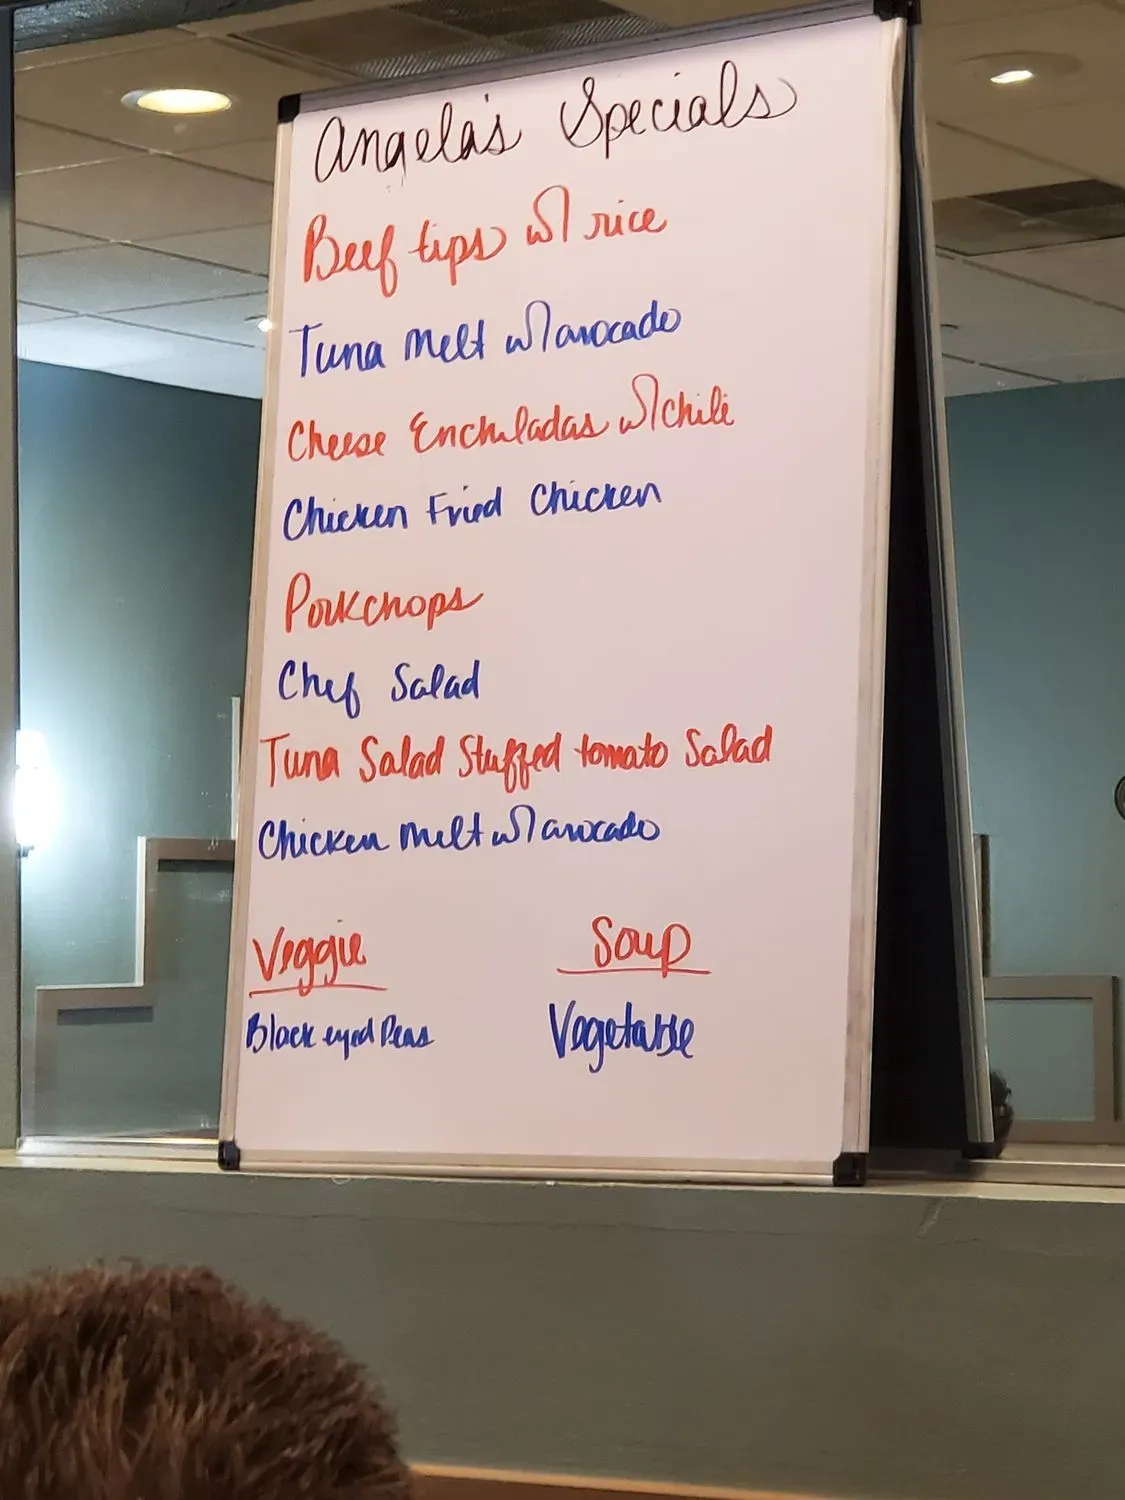 Angela's Specials
Beef tips w/ rice
Tuna melt w/ avocado
Cheese Enchiladas w/ chili
Chicken Fried Chicken
Porkchops
Chef Salad
Tuna Salad Stuffed tomato Salad
Chicken melt w/ avocado
Veggie Soup
Black eyed Peas Vegetable